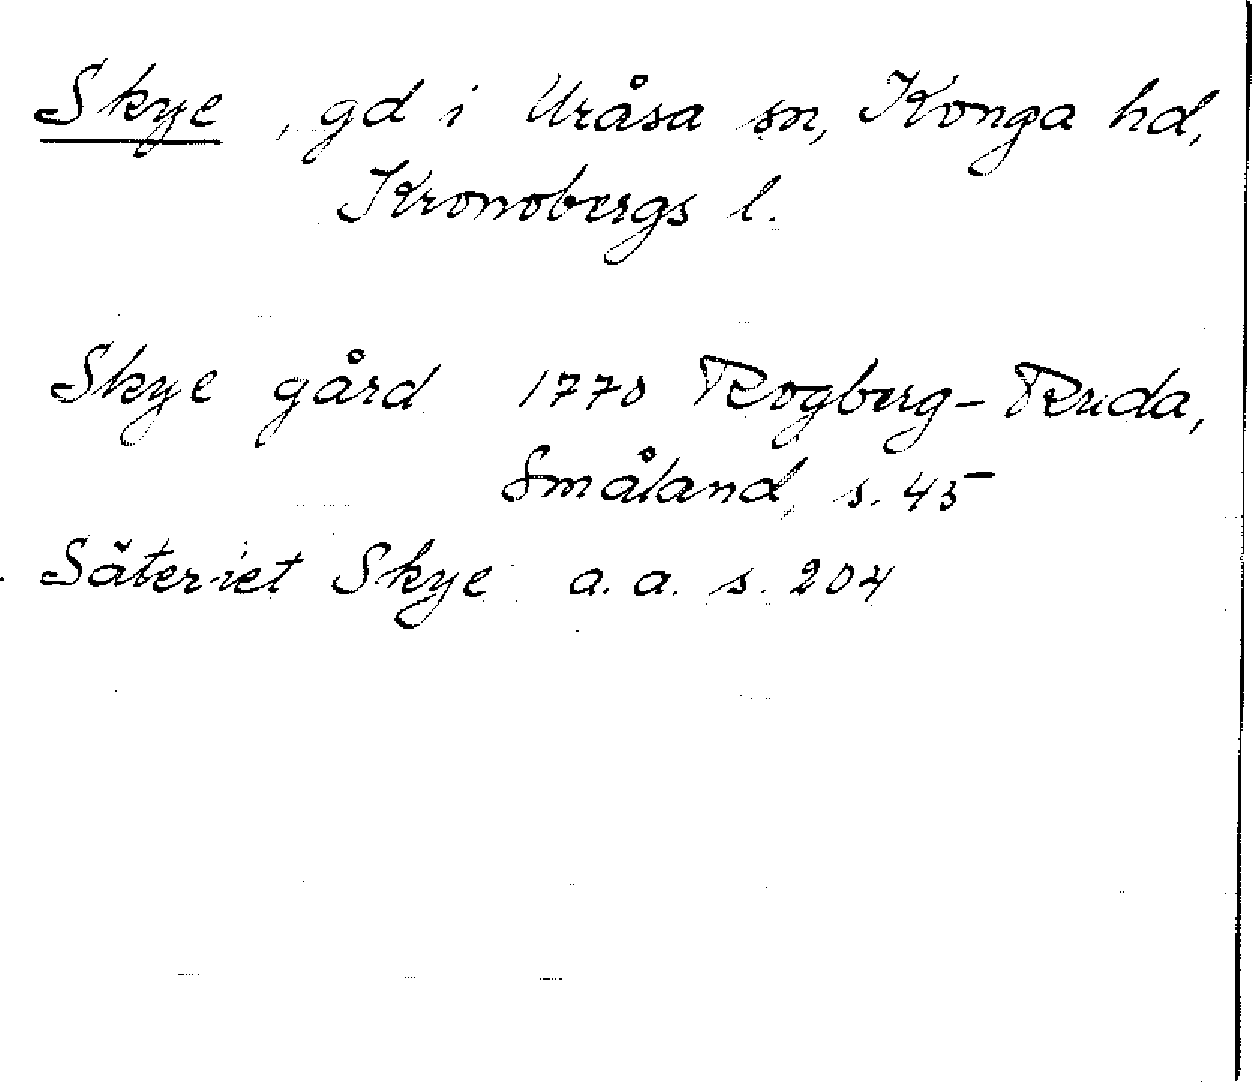 Skye, gd i Uråsa sn, Konga hd,
Kronobergs l.
Skye gård 1770 Rogberg-Ruda,
Småland, s. 45
Säteriet Skye a. a. s. 204